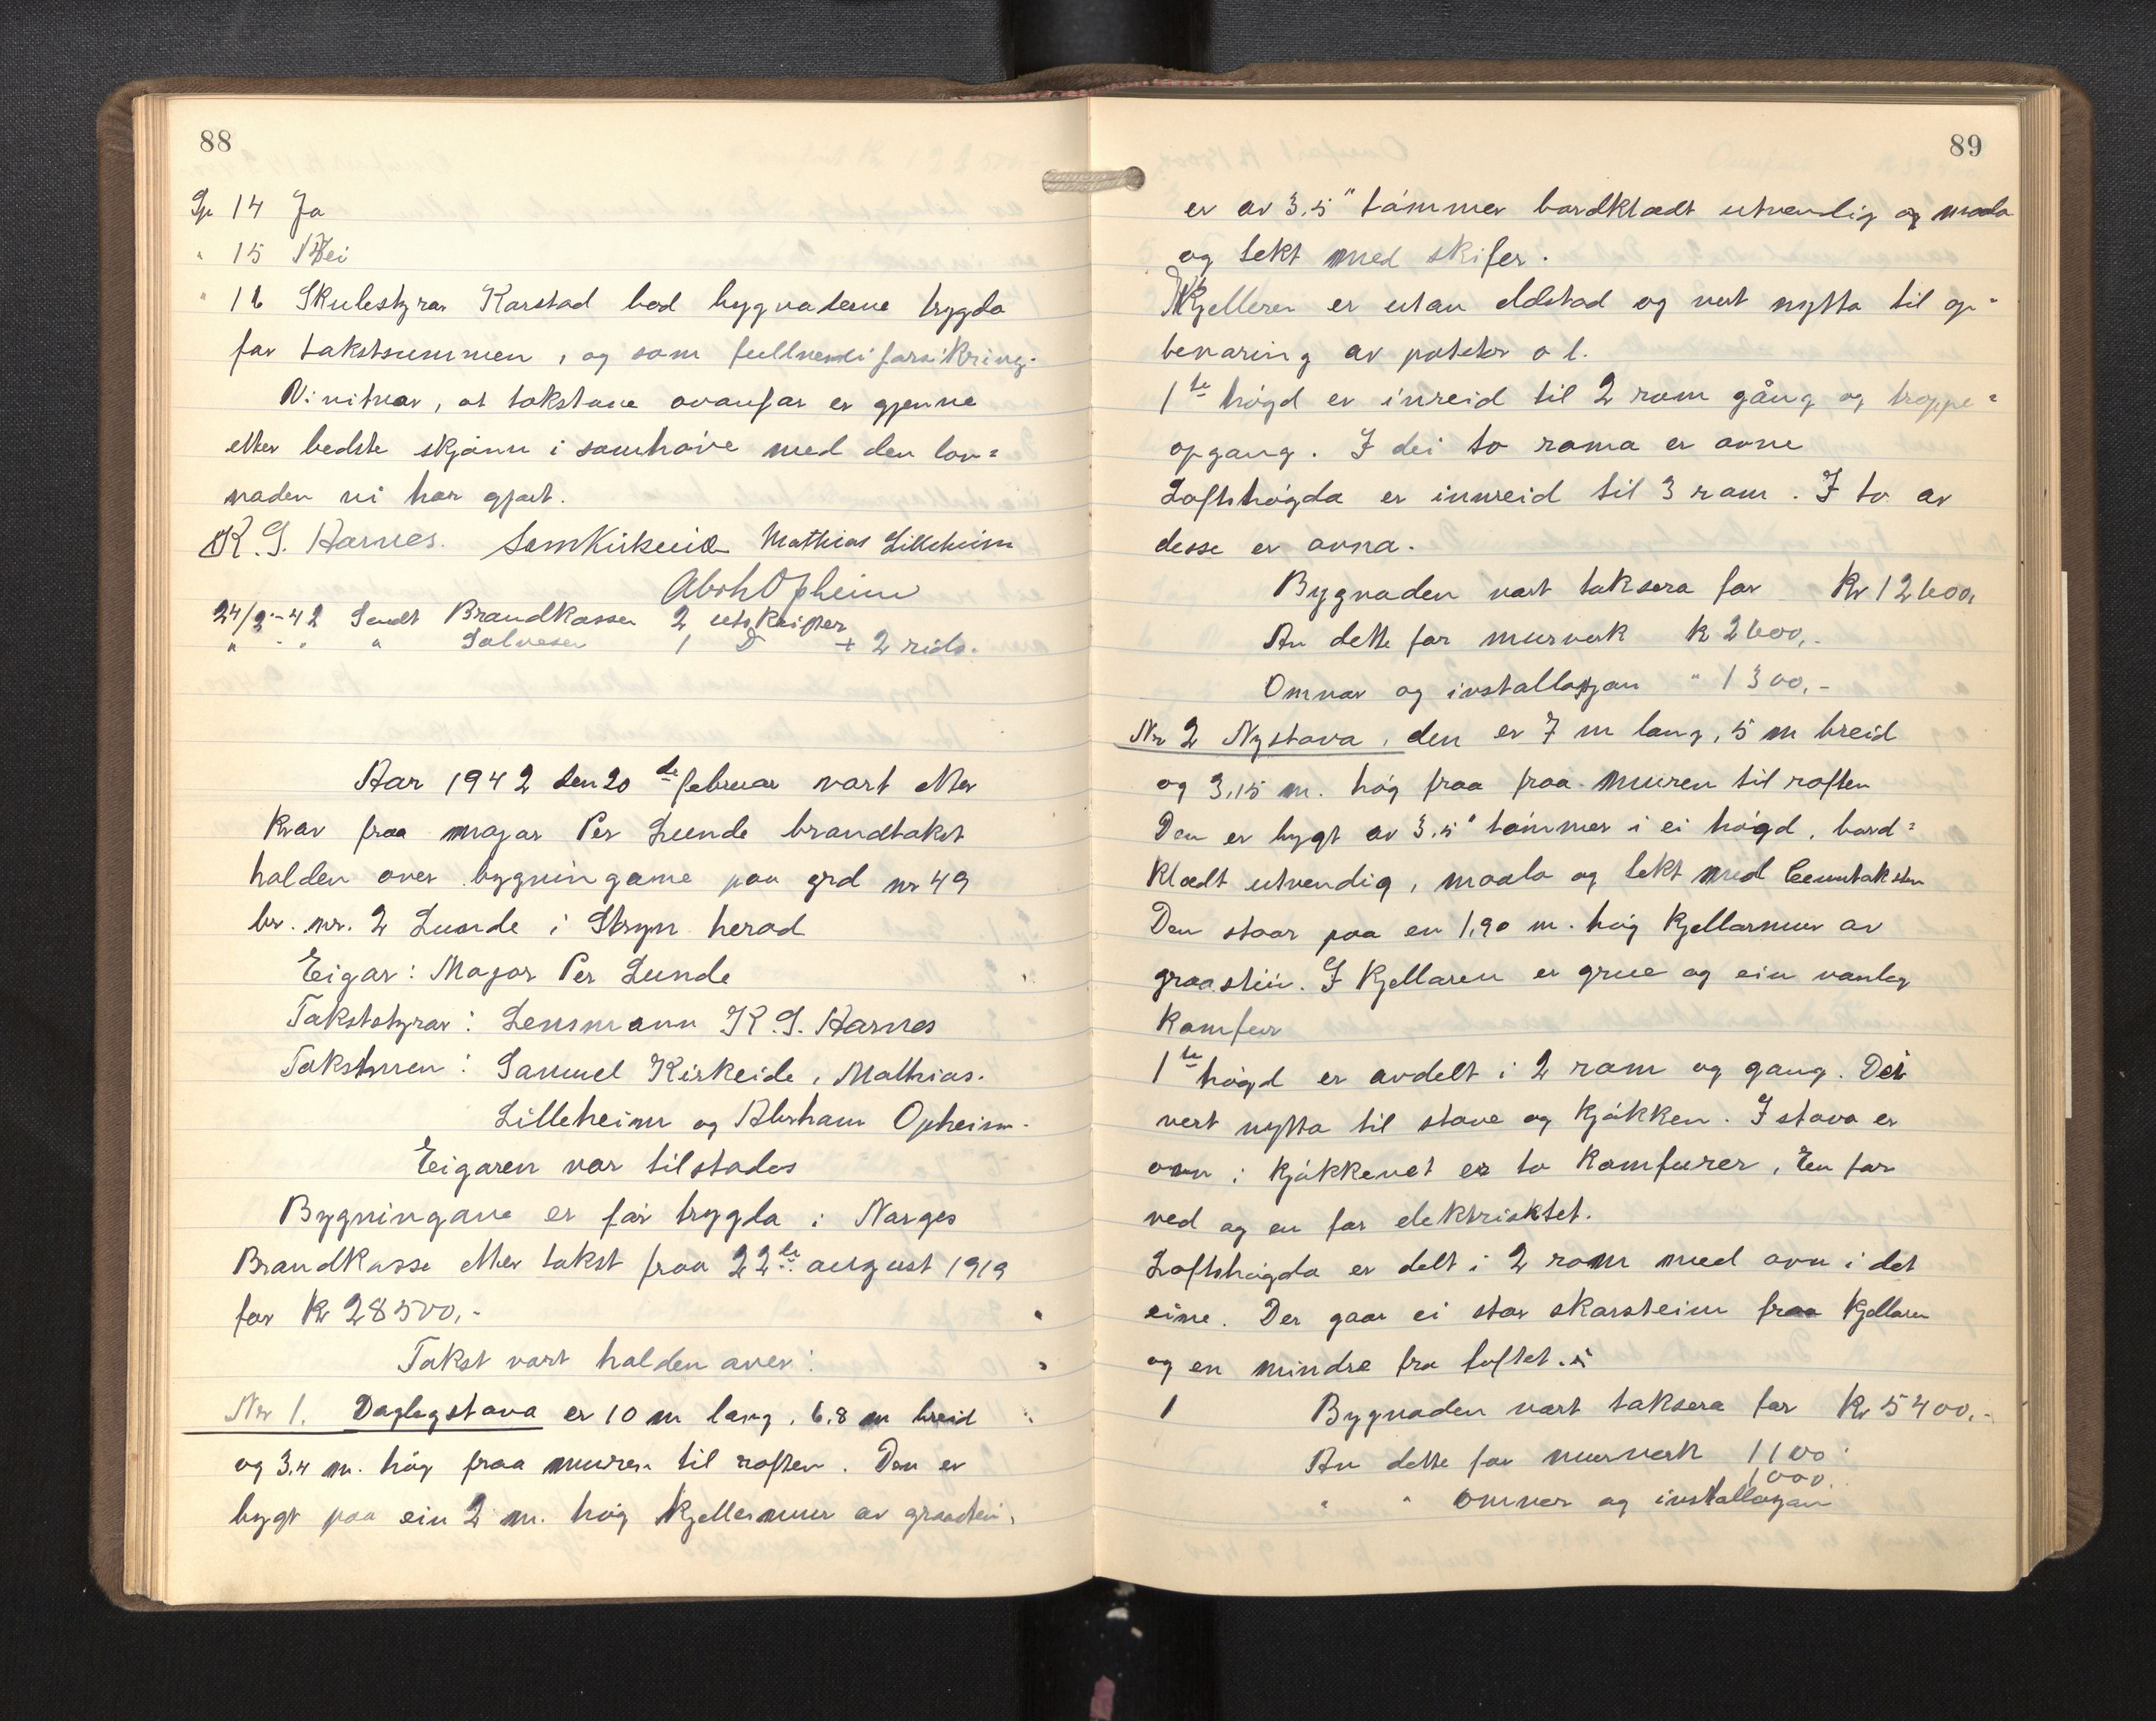 88
Sp 14 Ja
" 15 Nei
" 16 Skulestyrar Karstad bad bygnaderne trygda
for takstsummen, og som fullverdiforsikring.
Vi vitnar, at takstane ovanfor er gjenne
etter bedste skjønn i samhøve med den lov=
naden vi har gjort.
K. S. Harnes. Sam Kirkeide Mathias Lilleheim
Abrh Opheim
24/2-42 Sendt Brandkassen 2 utskrifter
" - " " Solvesen 1 D + 2 rids.
Aar 1942 den 20de februar vart etter
krav fraa major Per Lunde brandtakst
halden over bygningane paa grd nr 49
br. nr. 2 Lunde i Stryn herad
Eigar: Major Per Lunde
Takststyrar: Lensmann K. S. Harnes
Takstmen: Samuel Kirkeide, Mathias
Lilleheim og Abraham Opheim.
Eigaren var tilstades
Bygningane er før trygda i Norges
Brandkasse etter takst fraa 22de august 1919
for Kr 28500,-
Takst vart halden over:
Nr 1. Daglegstova er 10 m lang, 6.8 m breid
og 3.4 m. høg fraa muren til roften. Den er
bygt paa ein 2 m. høg kjellermur av graastein,
89
er av 3.5" tømmer bordklædt utvendig og maala
og tekt med skifer.
Kjelleren er utan eldstad og vert nytta til op=
bevaring av poteter o l.
1te høgd er inreid til 2 rom gång og troppe=
opgang. I dei to roma er ovne
Loftshøgda er innreid til 3 rom. I to av
desse er ovna.
Bygnaden vart taksera for Kr 12600,
Av dette for murverk K 2600,-
Omnar og installasjon " 1300,-
Nr 2 Nystova, den er 7 m lang, 5 m breid
og 3,15 m. høg fraa fraa muren til roften
Den er bygt av 3.5" tømmer i ei høgd, bord=
klædt utvendig, maala og tekt med Cemtakstein
Den staar paa en 1,90 m. høg kjellarmur av
graastein. I kjellaren er grue og ein vanleg
komfur
1te høgd er avdelt i 2 rom og gang. Dei
vert nytta til stove og kjøkken. I stova er
omn i kjøkkenet er to komfurer, En for
ved og en for elektrisktet.
Loftshøgda er delt i 2 rom med ovn i det
eine. Der gaar ei stor skorstein fraa kjellaren
og en mindre fra loftet.
1 Bygnaden vart taksera for Kr 5400,-
Av dette for murverk 1100
" " omner og installasjon 1000.